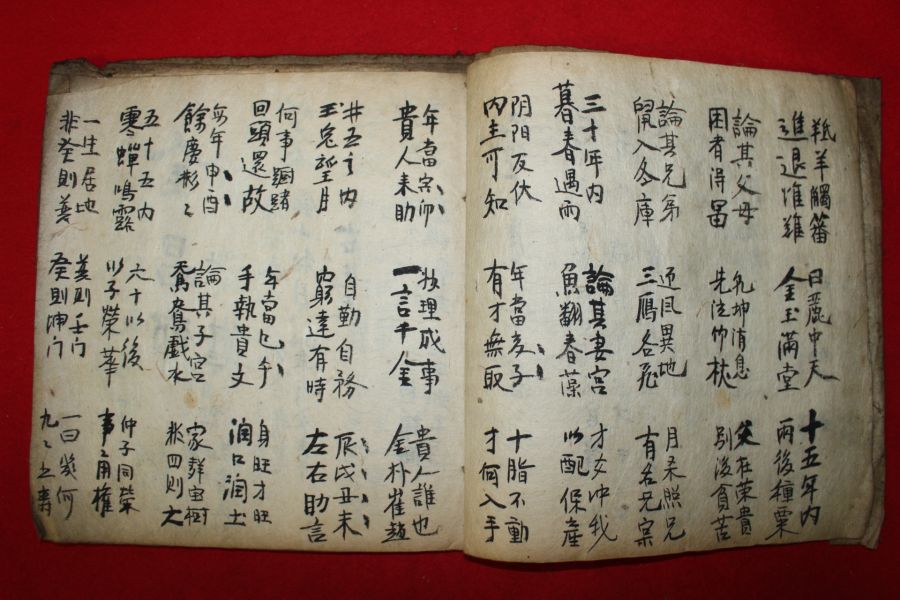 羝羊觸藩
進退准難
日麗中天
金玉滿堂
十五年內
雨後種粟
論其父母
困者得冨
坤消息
先泣竹杖
父在榮貴
別後貧苦
論其兄弟
入各庫
風異地
三鴈各飛
月柔照兄
有名兄宗
三十年內
暮春遇雨
論其妻宮
魚翻春藻
才女冲我
以配保產
阴阳反伏
内主可知
年當亥子
有才無取
十脂不動
才何入手
年當寅卯
貴人来助
理成事
一言千金
貴人誰也
金朴崔趙
卄五之内
玉兔望月
自勤自務
窮達有時
辰戌丑未
左右助言
何事緖
回頭還故
年當巳午
手執貴文
身旺才旺
润口润土
每年申酉
餘慶彬々
論其子宮
鴛鴦戱水
家樹
四則大
五十五内
寒蟬鳴露
六十以後
以子榮華
仲子同榮
事之用權
一生居地
非癸則姜
姜則壬门
癸則坤门
一曰幾何
九々之壽